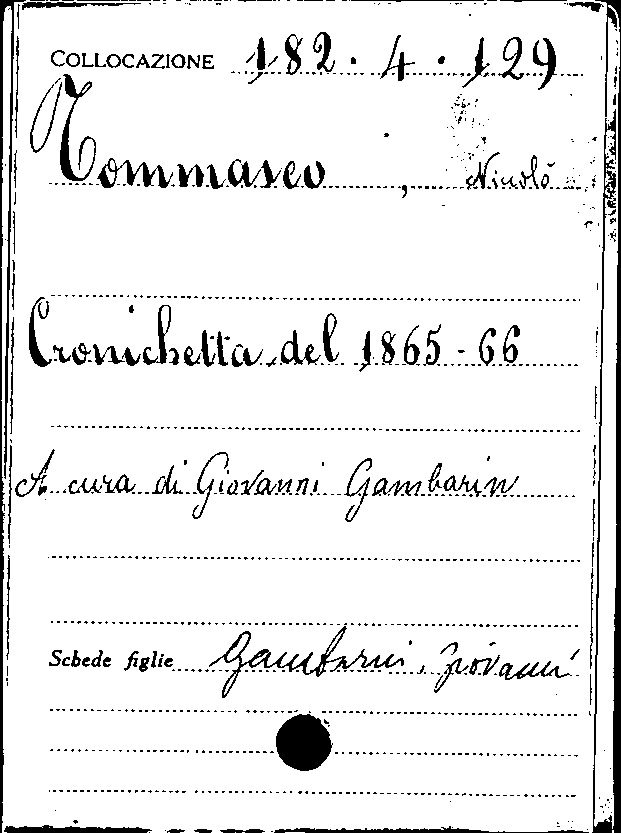 COLLOCAZIONE 182.4.129
Tommaseo, Nicolò
Cronichetta del 1865-66
A cura di Giovanni Gambarin
Schede figlie Gambarin, Giovanni